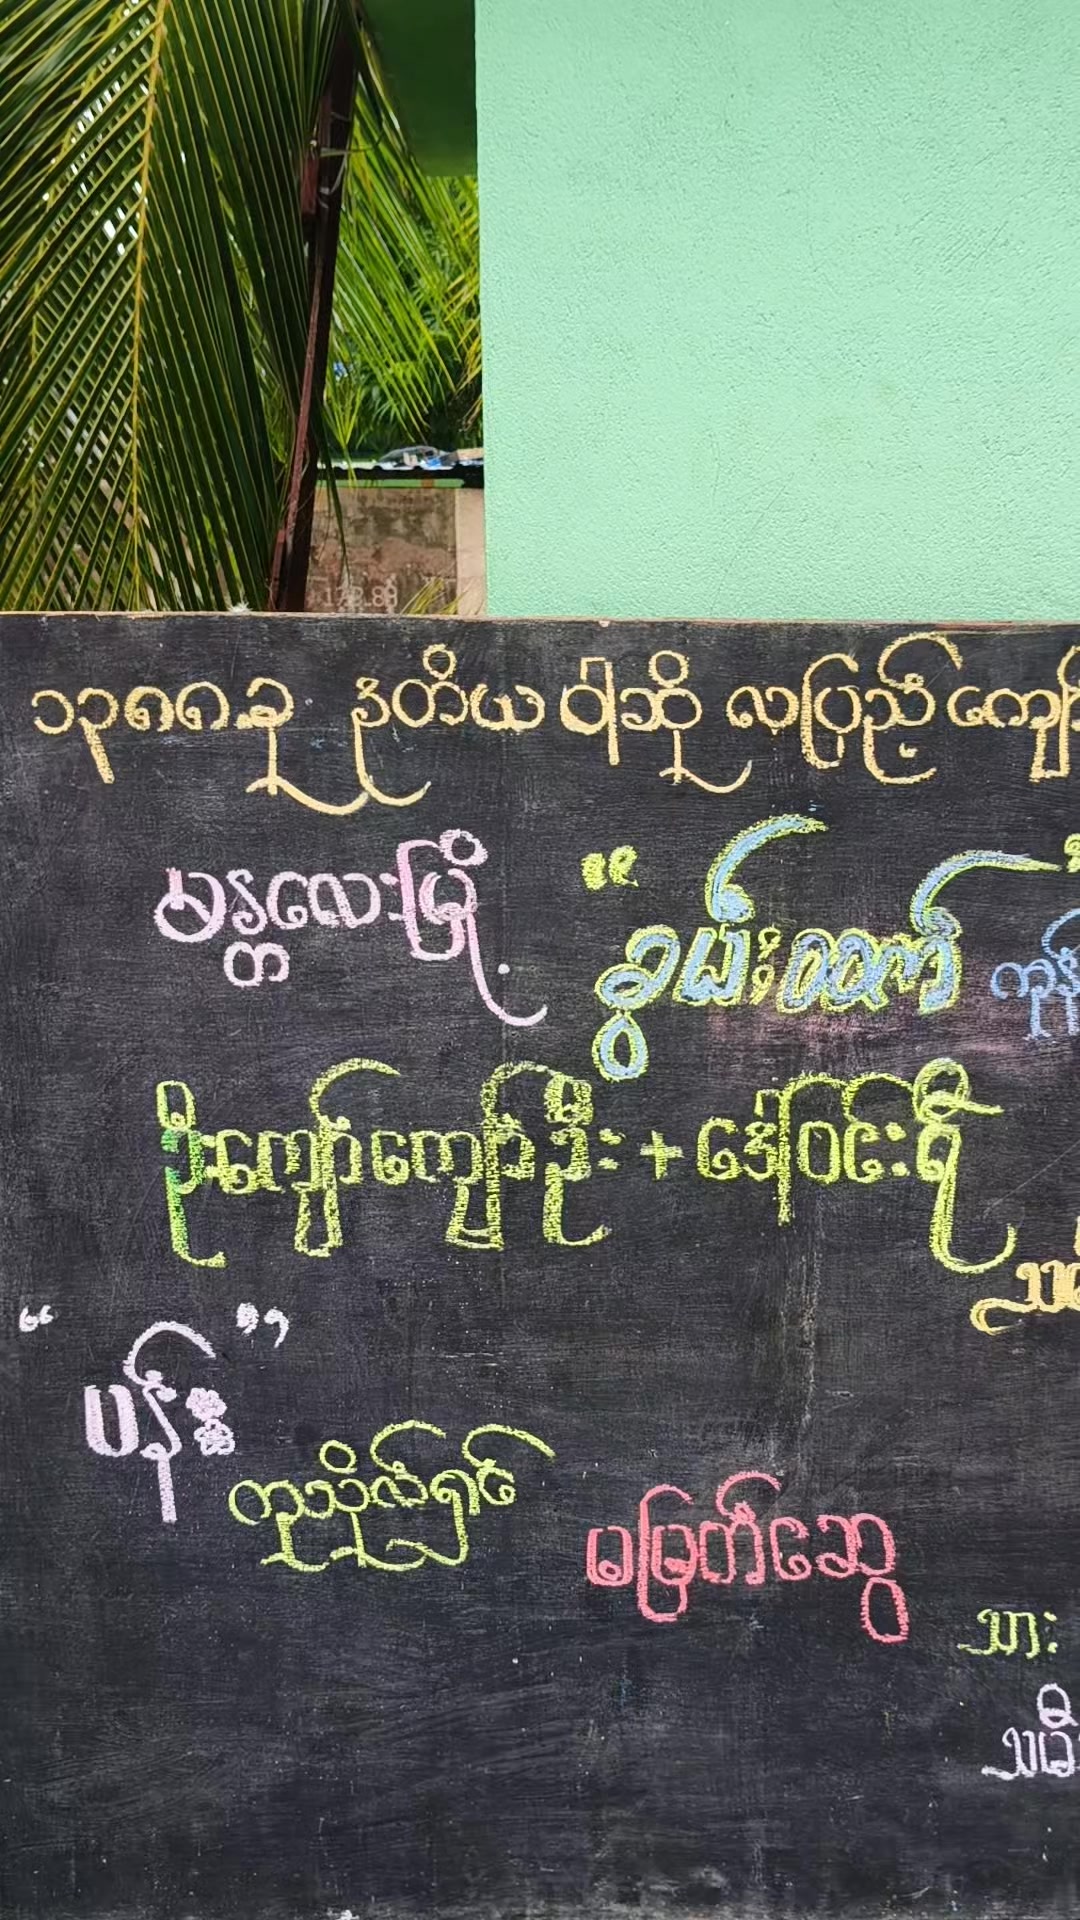 ၁၃၈၈.ခု ဒုတိယ ဝါဆို လပြည့်ကျော်
မန္တလေးမြို့
"ခွမ်းထော် ကုန်
ဦးကျော်ကျော်ဦး + ဒေါ်ဝင်းရီ
“ပန်းဆွဲ”
ကုသိုလ်ရှင်
မမြတ်ဆွေ
သား